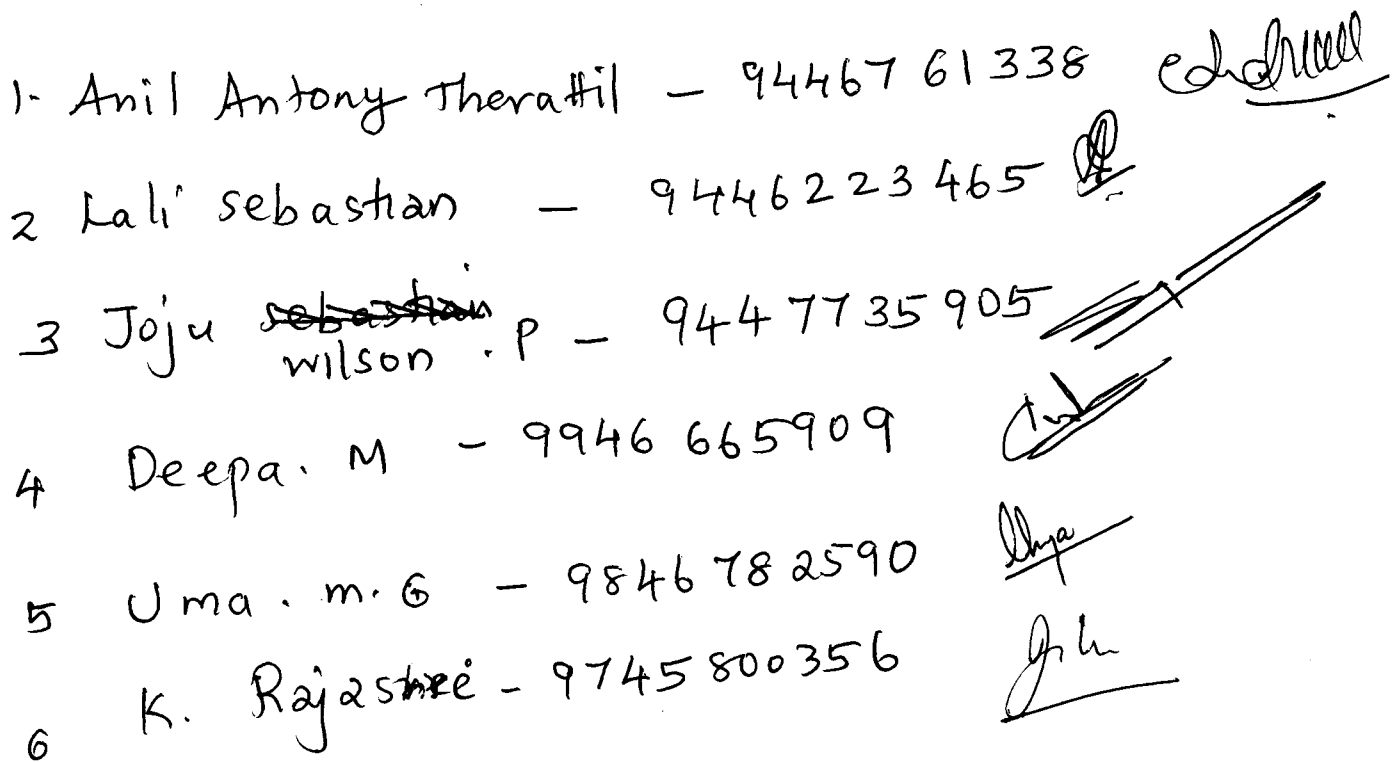 1. Anil Antony Therattil - 94467 61338
2 Lali sebastian - 9446223465
3 Joju wilson . P - 944 7735905
4 Deepa. M - 9946 665909
5 Uma . m. G - 9846 782590
6 K. Rajasree - 9745 800356